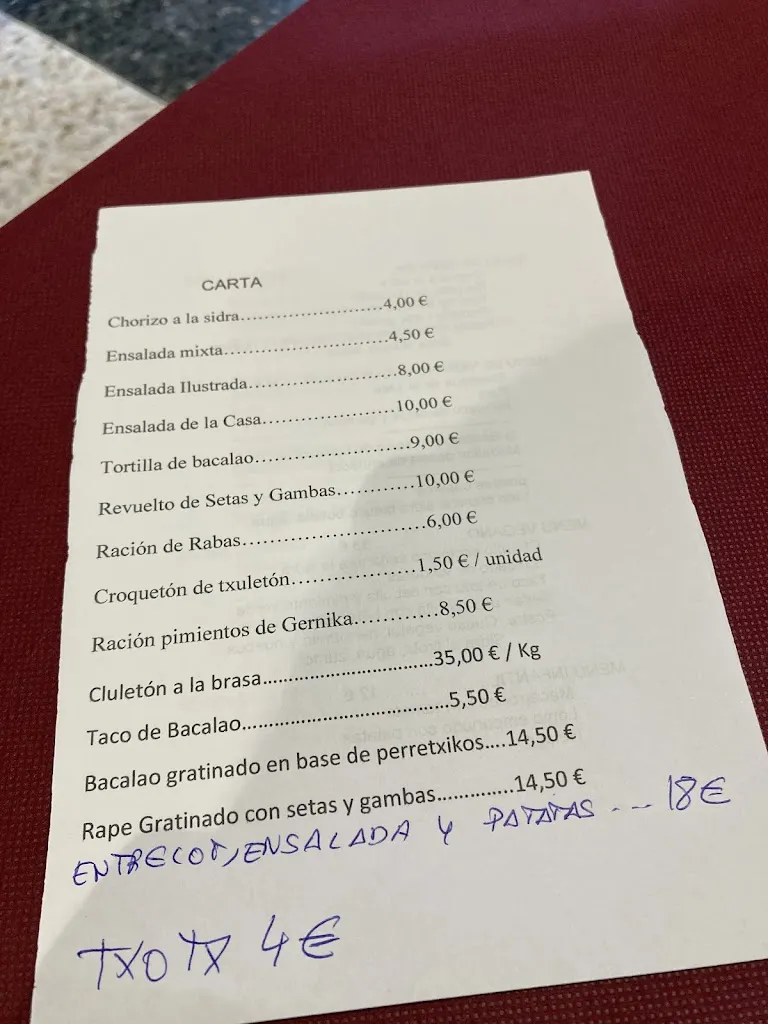 CARTA
Chorizo a la sidra........................4,00 €
Ensalada mixta............................4,50 €
Ensalada Ilustrada.........................8,00 €
Ensalada de la Casa......................10,00 €
Tortilla de bacalao.........................9,00 €
Revuelto de Setas y Gambas............10,00 €
Ración de Rabas.............................6,00 €
Croquetón de txuletón...................1,50 € / unidad
Ración pimientos de Gernika............8,50 €
Cluletón a la brasa..............................35,00 € / Kg
Taco de Bacalao....................................5,50 €
Bacalao gratinado en base de perretxikos....14,50 €
Rape Gratinado con setas y gambas.............14,50 €
ENTRECOT, ENSALADA Y PATATAS --- 18€
TXOTX 4€